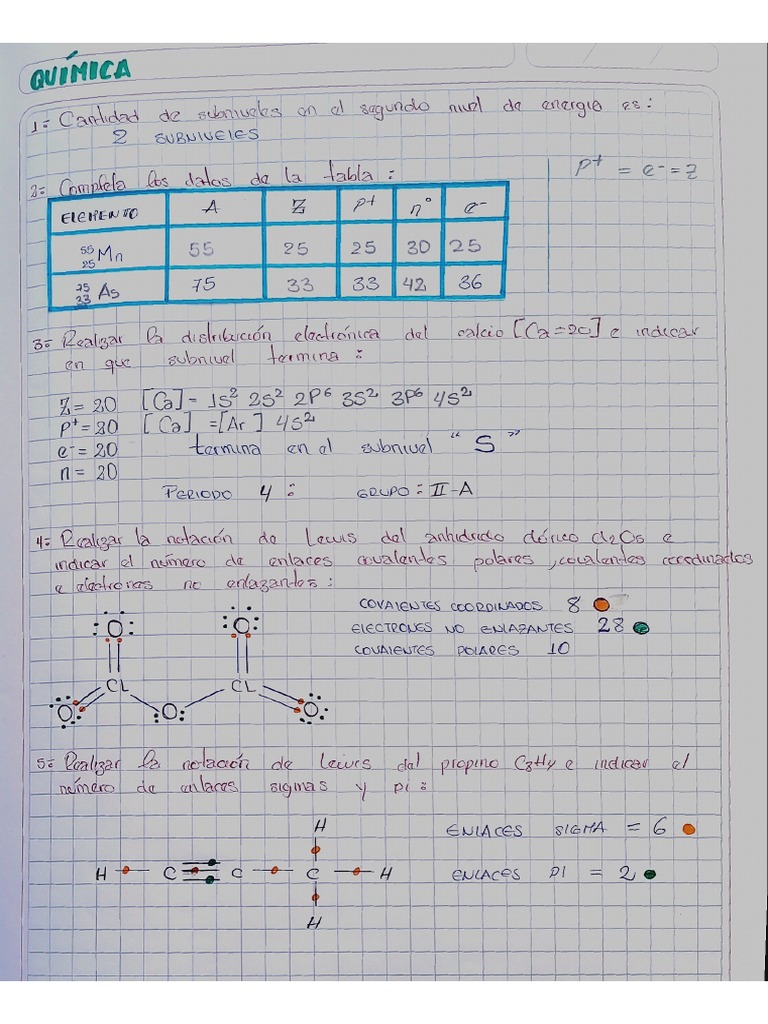 QUÍMICA
1= Cantidad de subniveles en el segundo nivel de energía es:
2 SUBNIVELES
2= Completa los datos de la tabla:
P+ = e- = Z
ELEMENTO A Z P+ n° e-
55 25 Mn 55 25 25 30 25
75 33 As 75 33 33 42 36
3= Realizar la distribución electrónica del calcio [Ca=20] e indicar
en que subnivel termina:
Z = 20 [Ca] = 1S² 2S² 2P⁶ 3S² 3P⁶ 4S²
P+ = 20 [Ca] = [Ar] 4S²
e- = 20 termina en el subnivel "S"
n = 20
PERIODO 4: GRUPO: II-A
4= Realizar la notación de Lewis del anhidrido clórico Cl2O5 e
indicar el número de enlaces covalentes polares, covalentes coordinados
e electrones no enlazantes:
COVALENTES COORDINADOS 8
ELECTRONES NO ENLAZANTES 28
COVALENTES POLARES 10
O O
CL CL
O O O
5= Realizar la notación de Lewis del propino C3H4 e indicar el
número de enlaces sigmas y pi:
H
ENLACES SIGMA = 6
H C C C H
ENLACES PI = 2
H